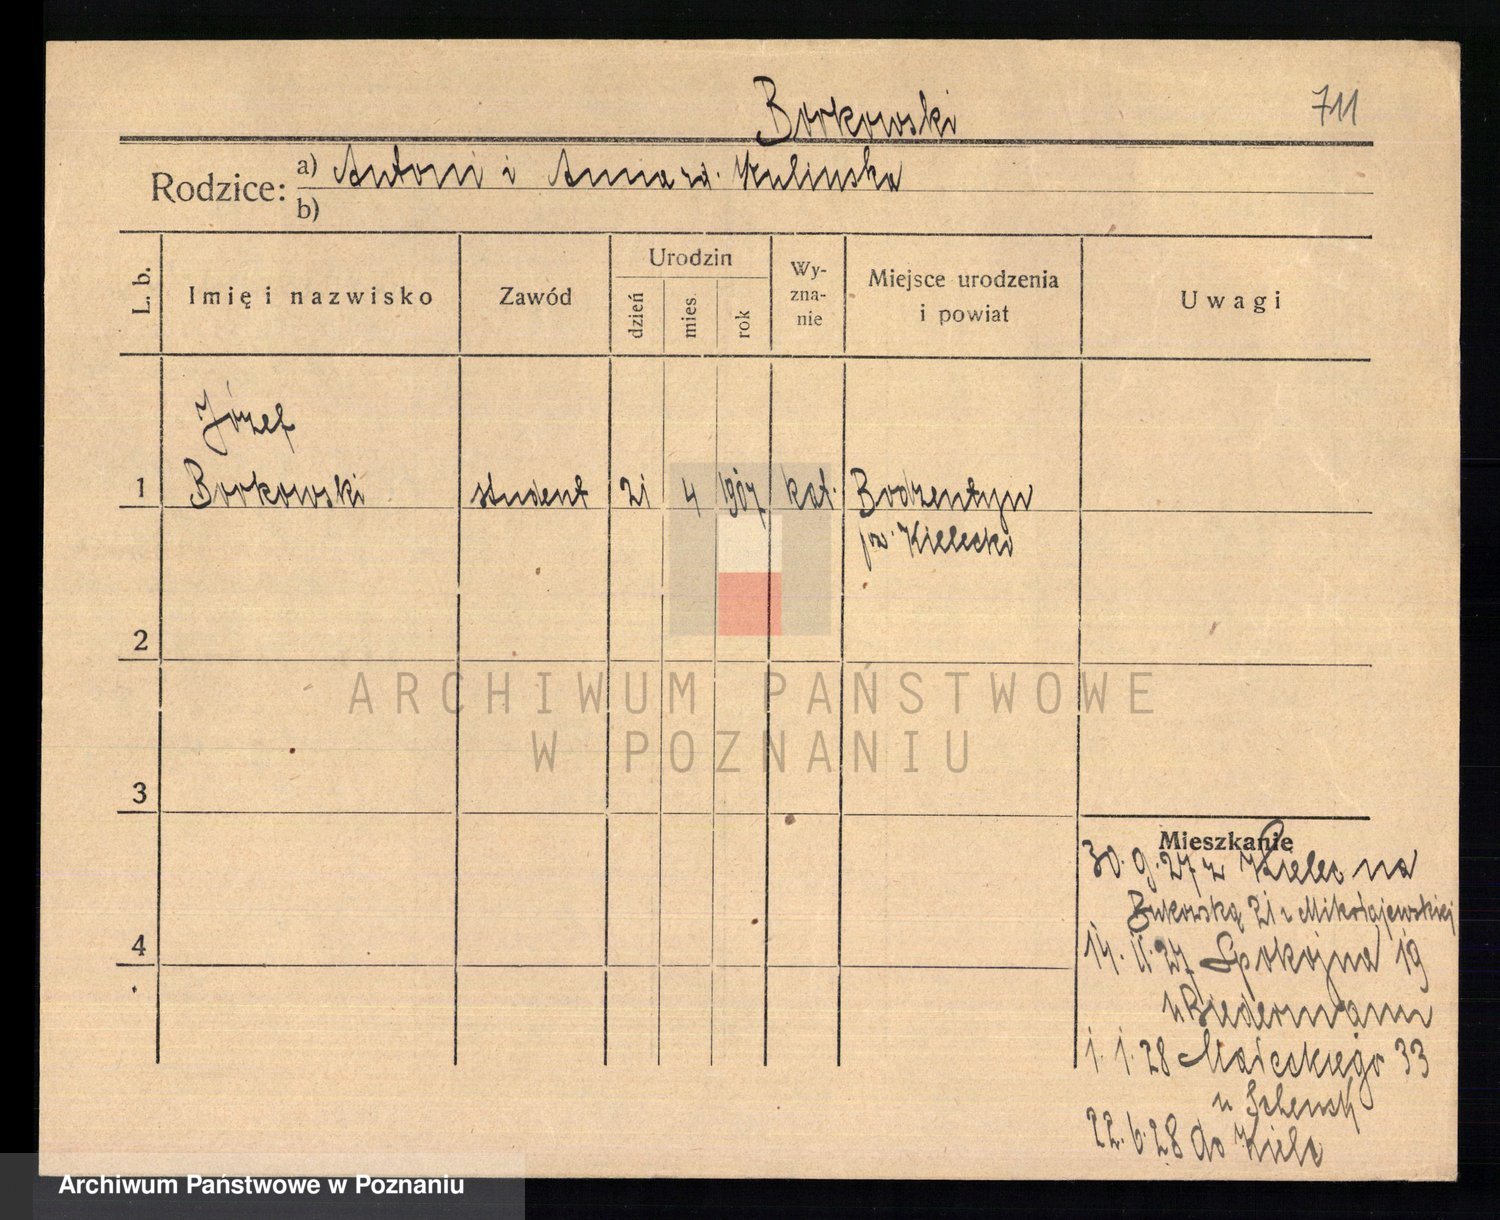 Borkowski
711
Rodzice: a) Antoni i Anna zd. Kulinska
b)
L. b.
Imię i nazwisko
Zawód
Urodzin
dzień
mies.
rok
Wy-
zna-
nie
Miejsce urodzenia
i powiat
Uwagi
Józef
1 Borkowski student 21 4 1907 kat. Bodzentyn
pow. Kielecki
2
ARCHIWUM PAŃSTWOWE
W POZNANIU
3
Mieszkanie
30. 9. 27 z Kielec na
Bukowską 21 u Mikołajewskiej
4
14. 11. 27 Spokojna 19
u Biedermann
1. 1. 28 Małeckiego 33
u
22. 6. 28 do Kielc
Archiwum Państwowe w Poznaniu